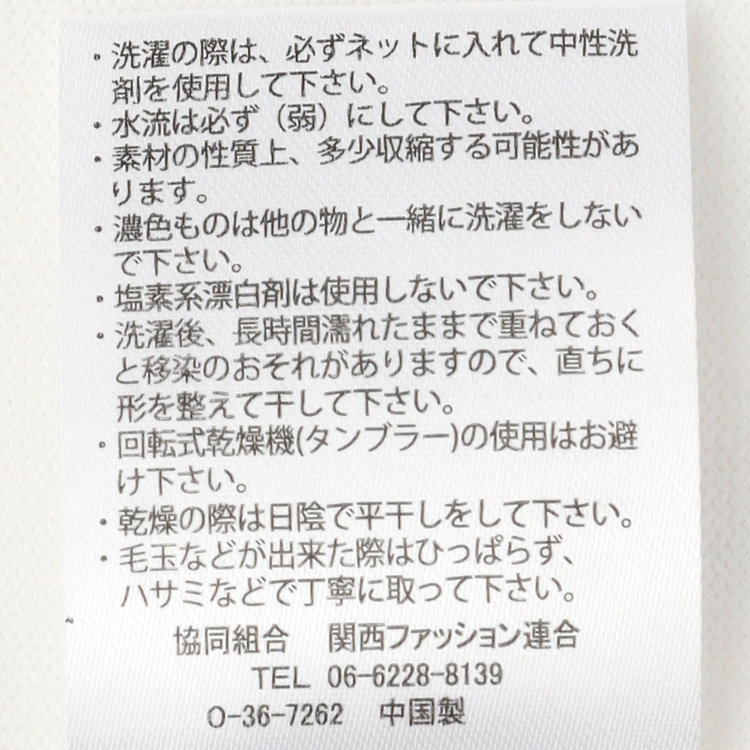 ・洗濯の際は、必ずネットに入れて中性洗
剤を使用して下さい。
・水流は必ず（弱）にして下さい。
・素材の性質上、多少収縮する可能性があ
ります。
・濃色ものは他の物と一緒に洗濯をしない
で下さい。
・塩素系漂白剤は使用しないで下さい。
・洗濯後、長時間濡れたままで重ねておく
と移染のおそれがありますので、直ちに
形を整えて干して下さい。
・回転式乾燥機(タンブラー)の使用はお避
け下さい。
・乾燥の際は日陰で平干しをして下さい。
・毛玉などが出来た際はひっぱらず、
ハサミなどで丁寧に取って下さい。
協同組合　関西ファッション連合
TEL 06-6228-8139
O-36-7262　中国製